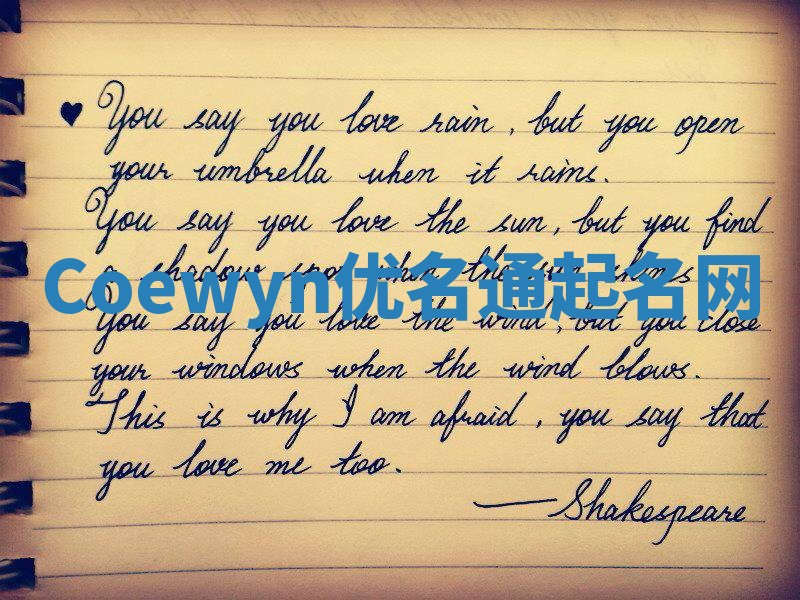 ♥ You say you love rain, but you open
your umbrella when it rains.
You say you love the sun, but you find
a shadow spot when the sun shines
Coewyn优名通起名网
You say you love the wind, but you close
your windows when the wind blows.
This is why I am afraid, you say that
you love me too.
—Shakespeare